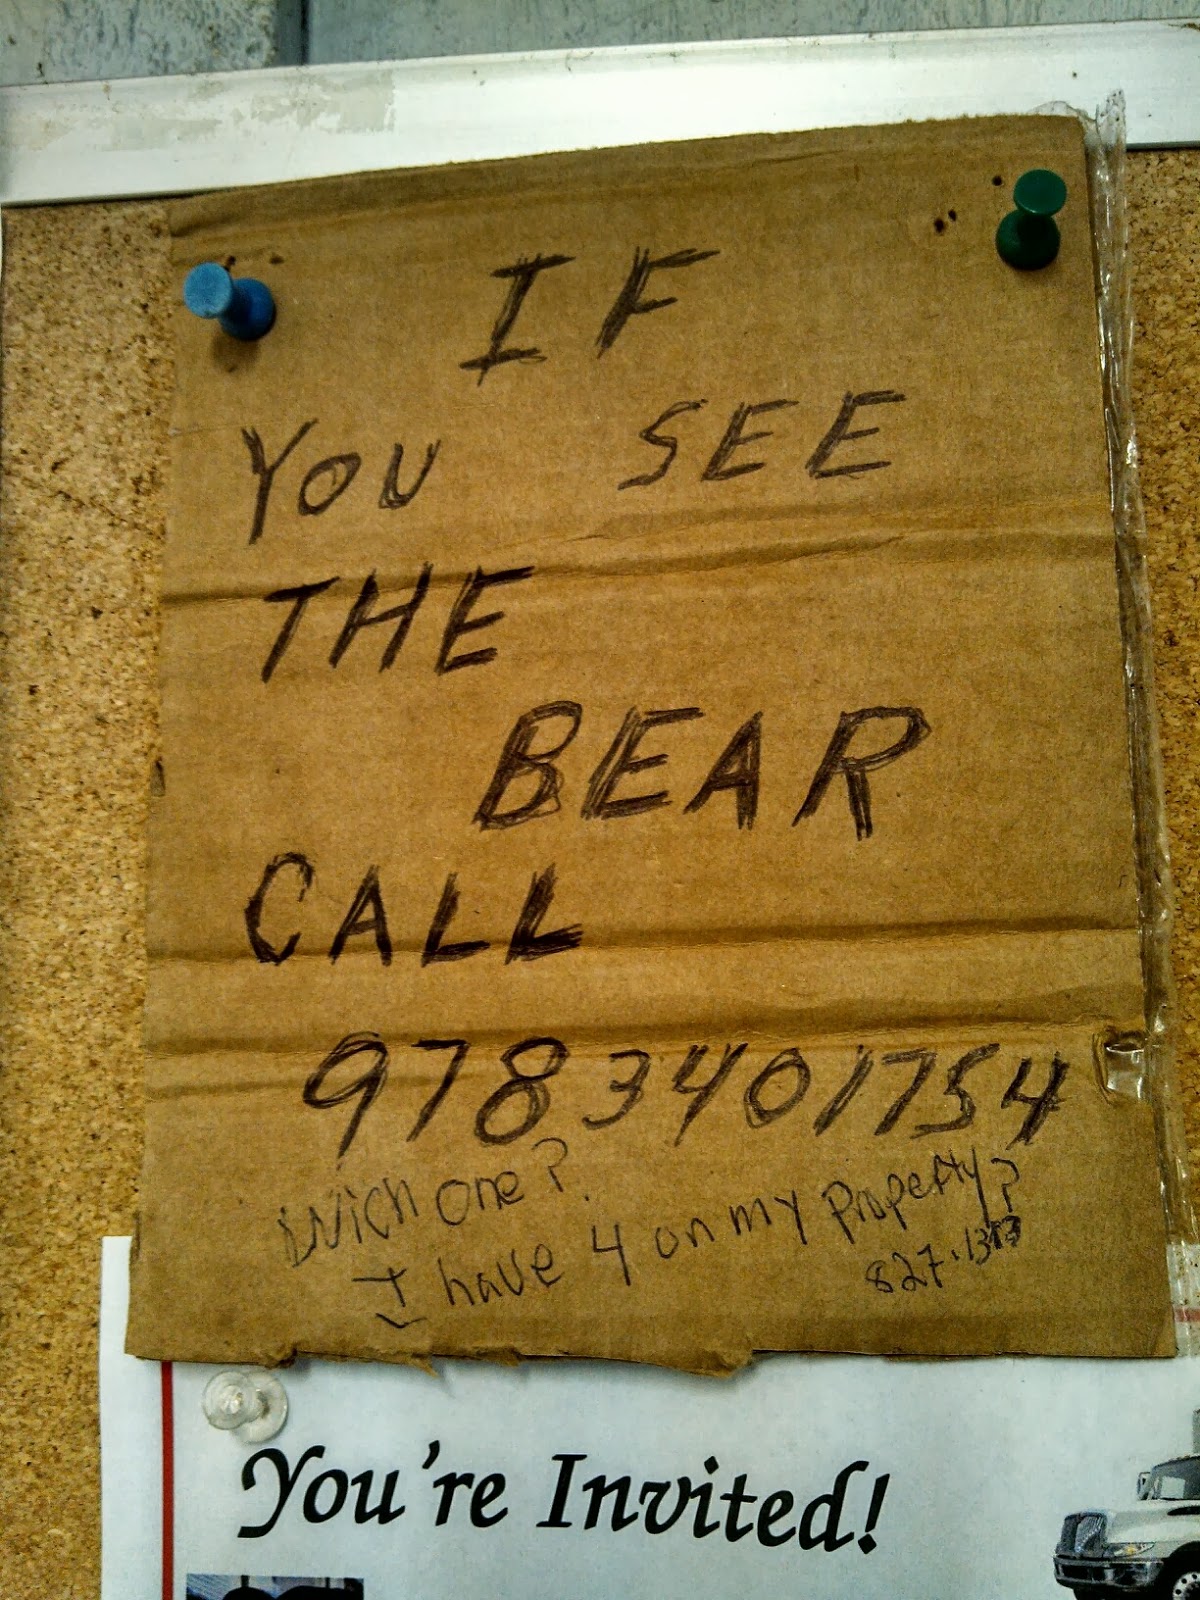 IF
YOU SEE
THE
BEAR
CALL
9783401754
Wich one?
I have 4 on my Property?
You're Invited!